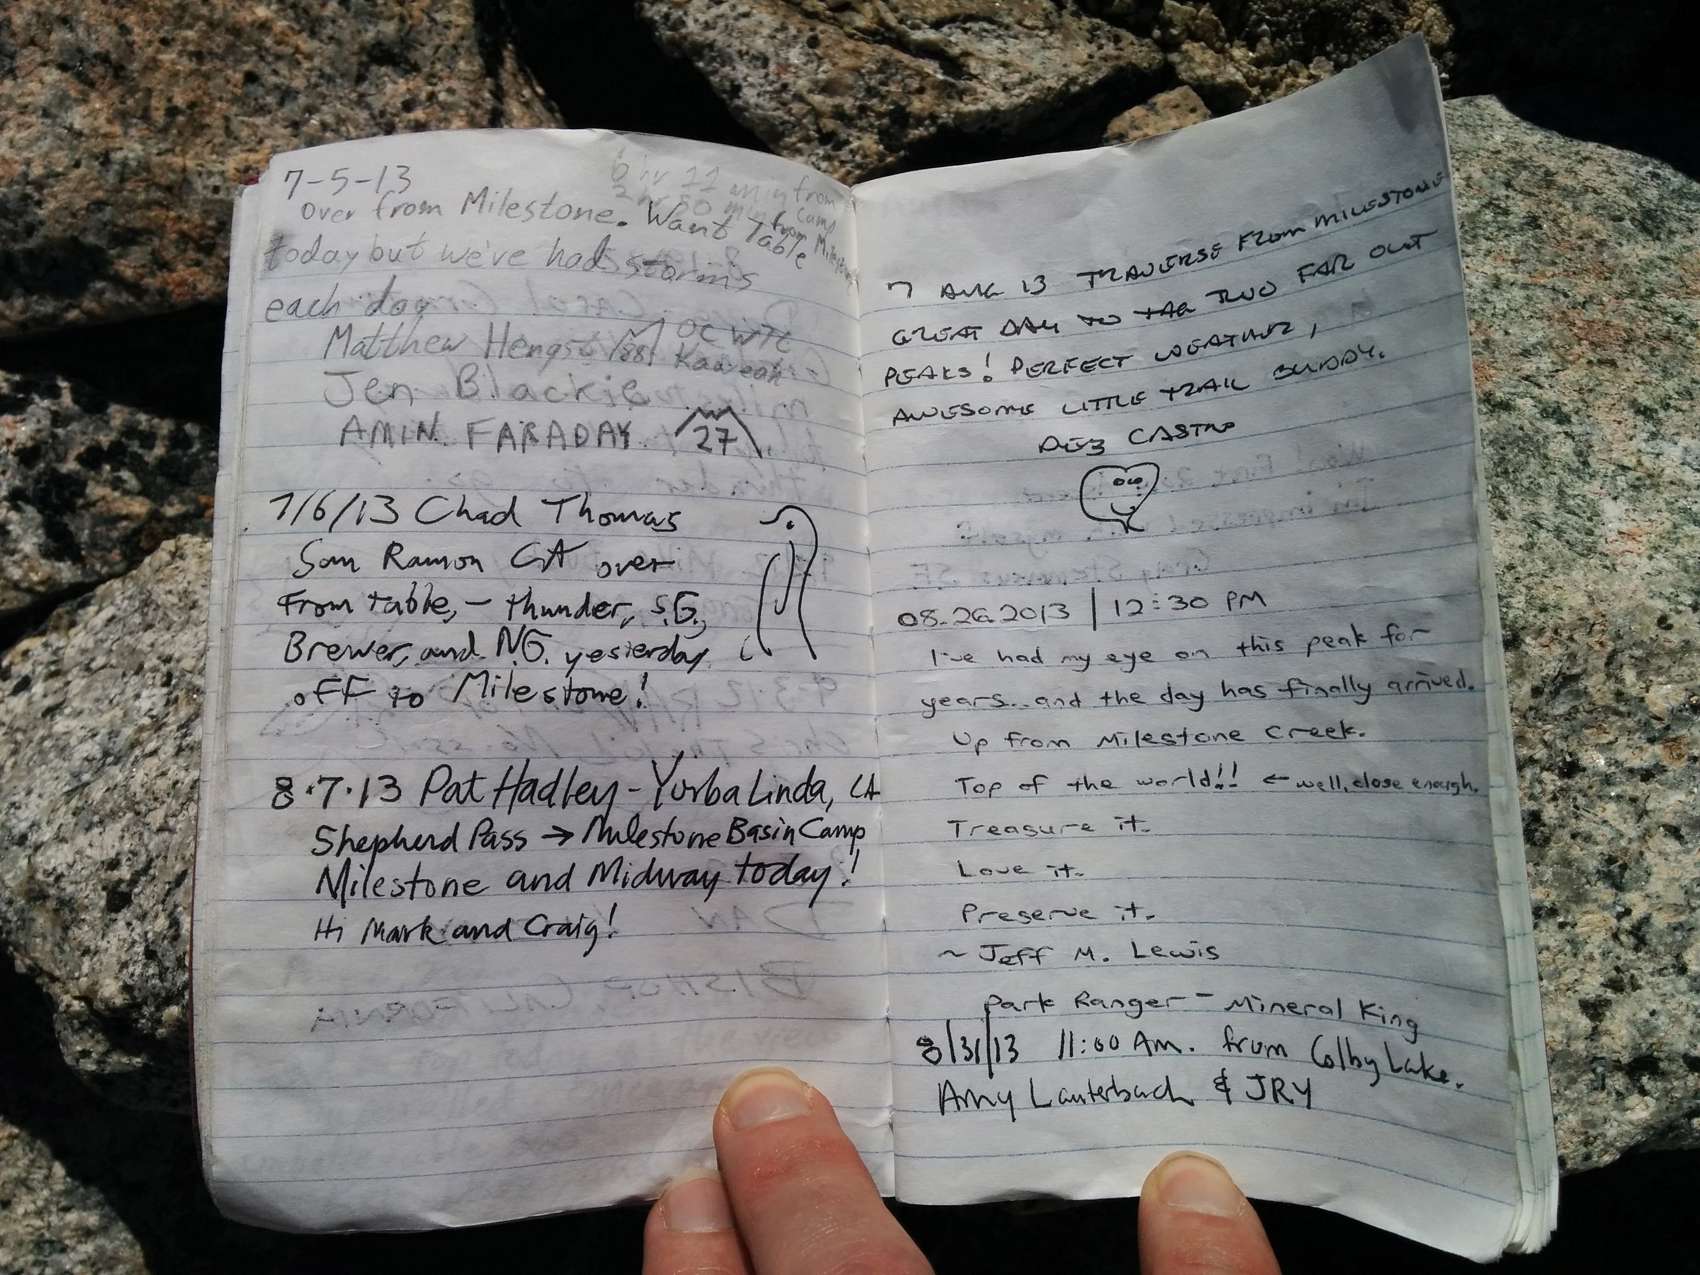 7-5-13
6 hr 11 min from
2 hr 20 min camp
from Milestone
over from Milestone. Want Table
today but we've had storms
each day
Matthew Hengst OCWTC
Jen Blackie Kaweah
AMIN FARADAY 27
7/6/13 Chad Thomas
San Ramon CA over
From table, - thunder, S.G.,
Brewer, and N.G. yesterday
off to Milestone!
8.7.13 Pat Hadley - Yorba Linda, CA
Shepherd Pass → Milestone Basin Camp
Milestone and Midway today!
Hi Mark and Craig!
7 AUG 13 TRAVERSE FROM MILESTONE
GREAT DAY TO TAG TWO FAR OUT
PEAKS! PERFECT WEATHER,
AWESOME LITTLE TRAIL BUDDY.
CASTRO
08.26.2013 | 12:30 PM
I've had my eye on this peak for
years... and the day has finally arrived.
Up from Milestone Creek.
Top of the world!! ← well, close enough.
Treasure it.
Love it.
Preserve it.
~ Jeff M. Lewis
Park Ranger - Mineral King
8/31/13 11:00 Am. from Colby Lake.
Amy Lauterbach & JRY